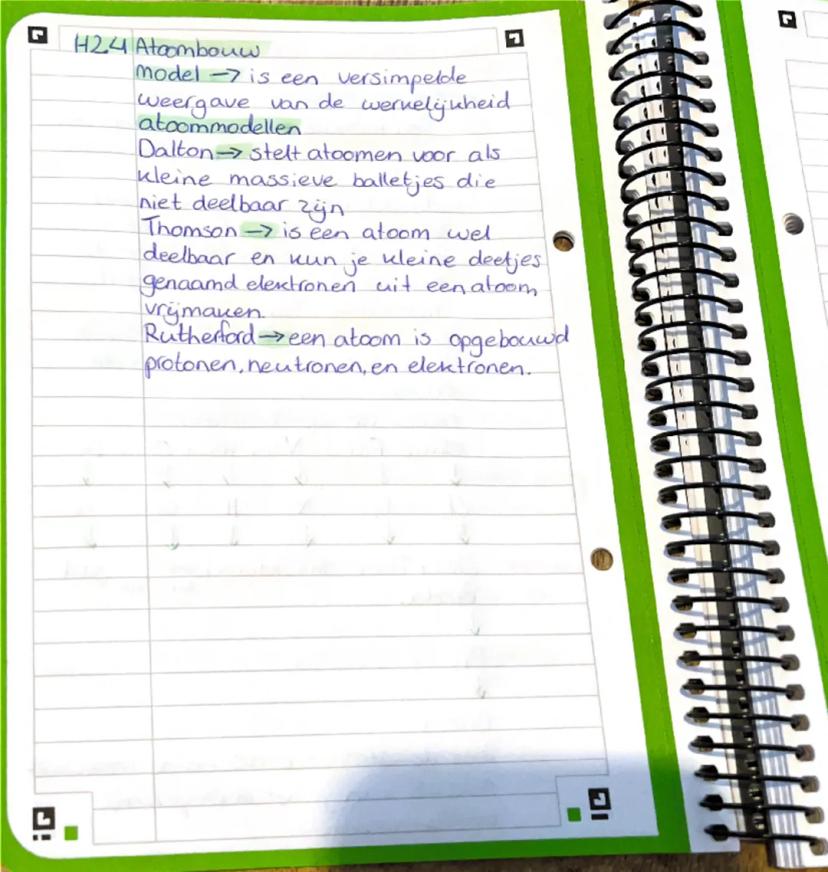 H2.4 Atoombouw
model → is een versimpelde
weergave van de werkelijkheid
atoommodellen
Dalton → stelt atoomen voor als
kleine massieve balletjes die
niet deelbaar zijn
Thomson → is een atoom wel
deelbaar en kun je kleine deeltjes
genaamd elektronen uit een atoom
vrijmaken.
Rutherford → een atoom is opgebouwd
protonen, neutronen, en elektronen.